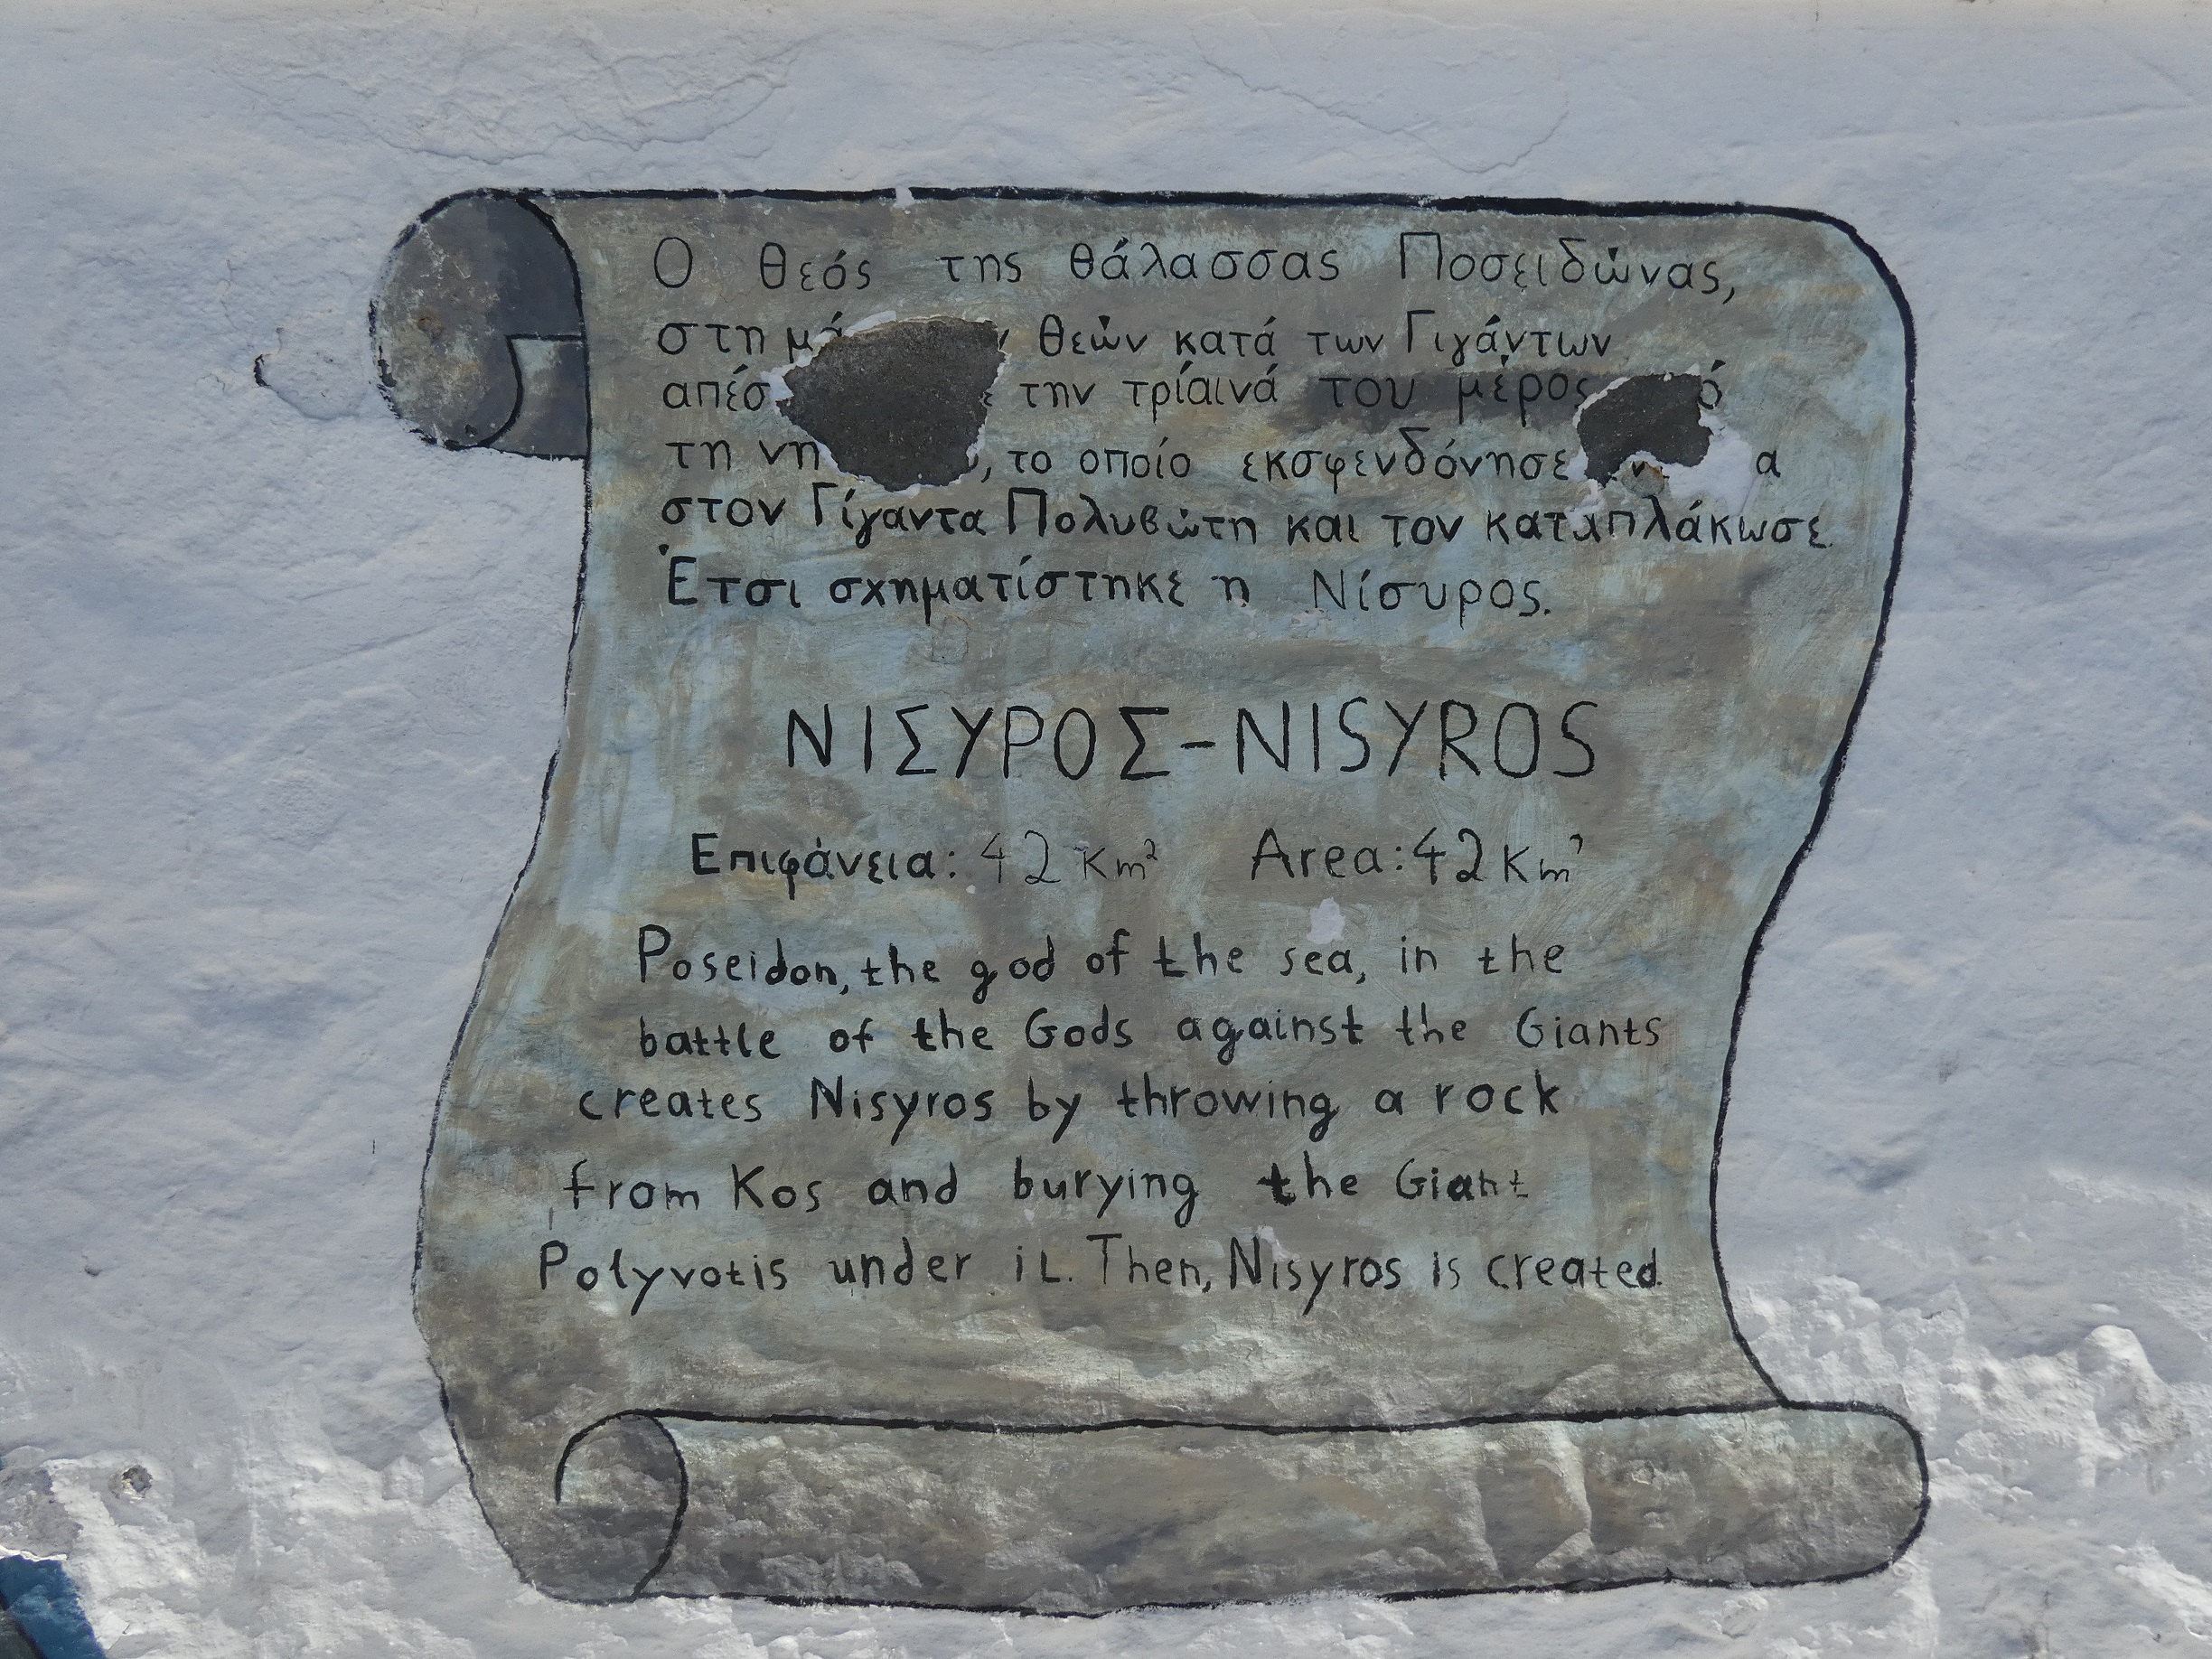 Ο θεός της θάλασσας Ποσειδώνας,
στη θεών κατά των Γιγάντων
την τρίαινά του μέρος
τη , το οποίο εκσφενδόνησε
στον Γίγαντα Πολυβώτη και τον καταπλάκωσε
Έτσι σχηματίστηκε η Νίσυρος.
ΝΙΣΥΡΟΣ-NISYROS
Επιφάνεια: 42 Km² Area: 42 Km²
Poseidon, the god of the sea, in the
battle of the Gods against the Giants
creates Nisyros by throwing a rock
from Kos and burying the Giant
Polyvotis under it. Then, Nisyros is created.